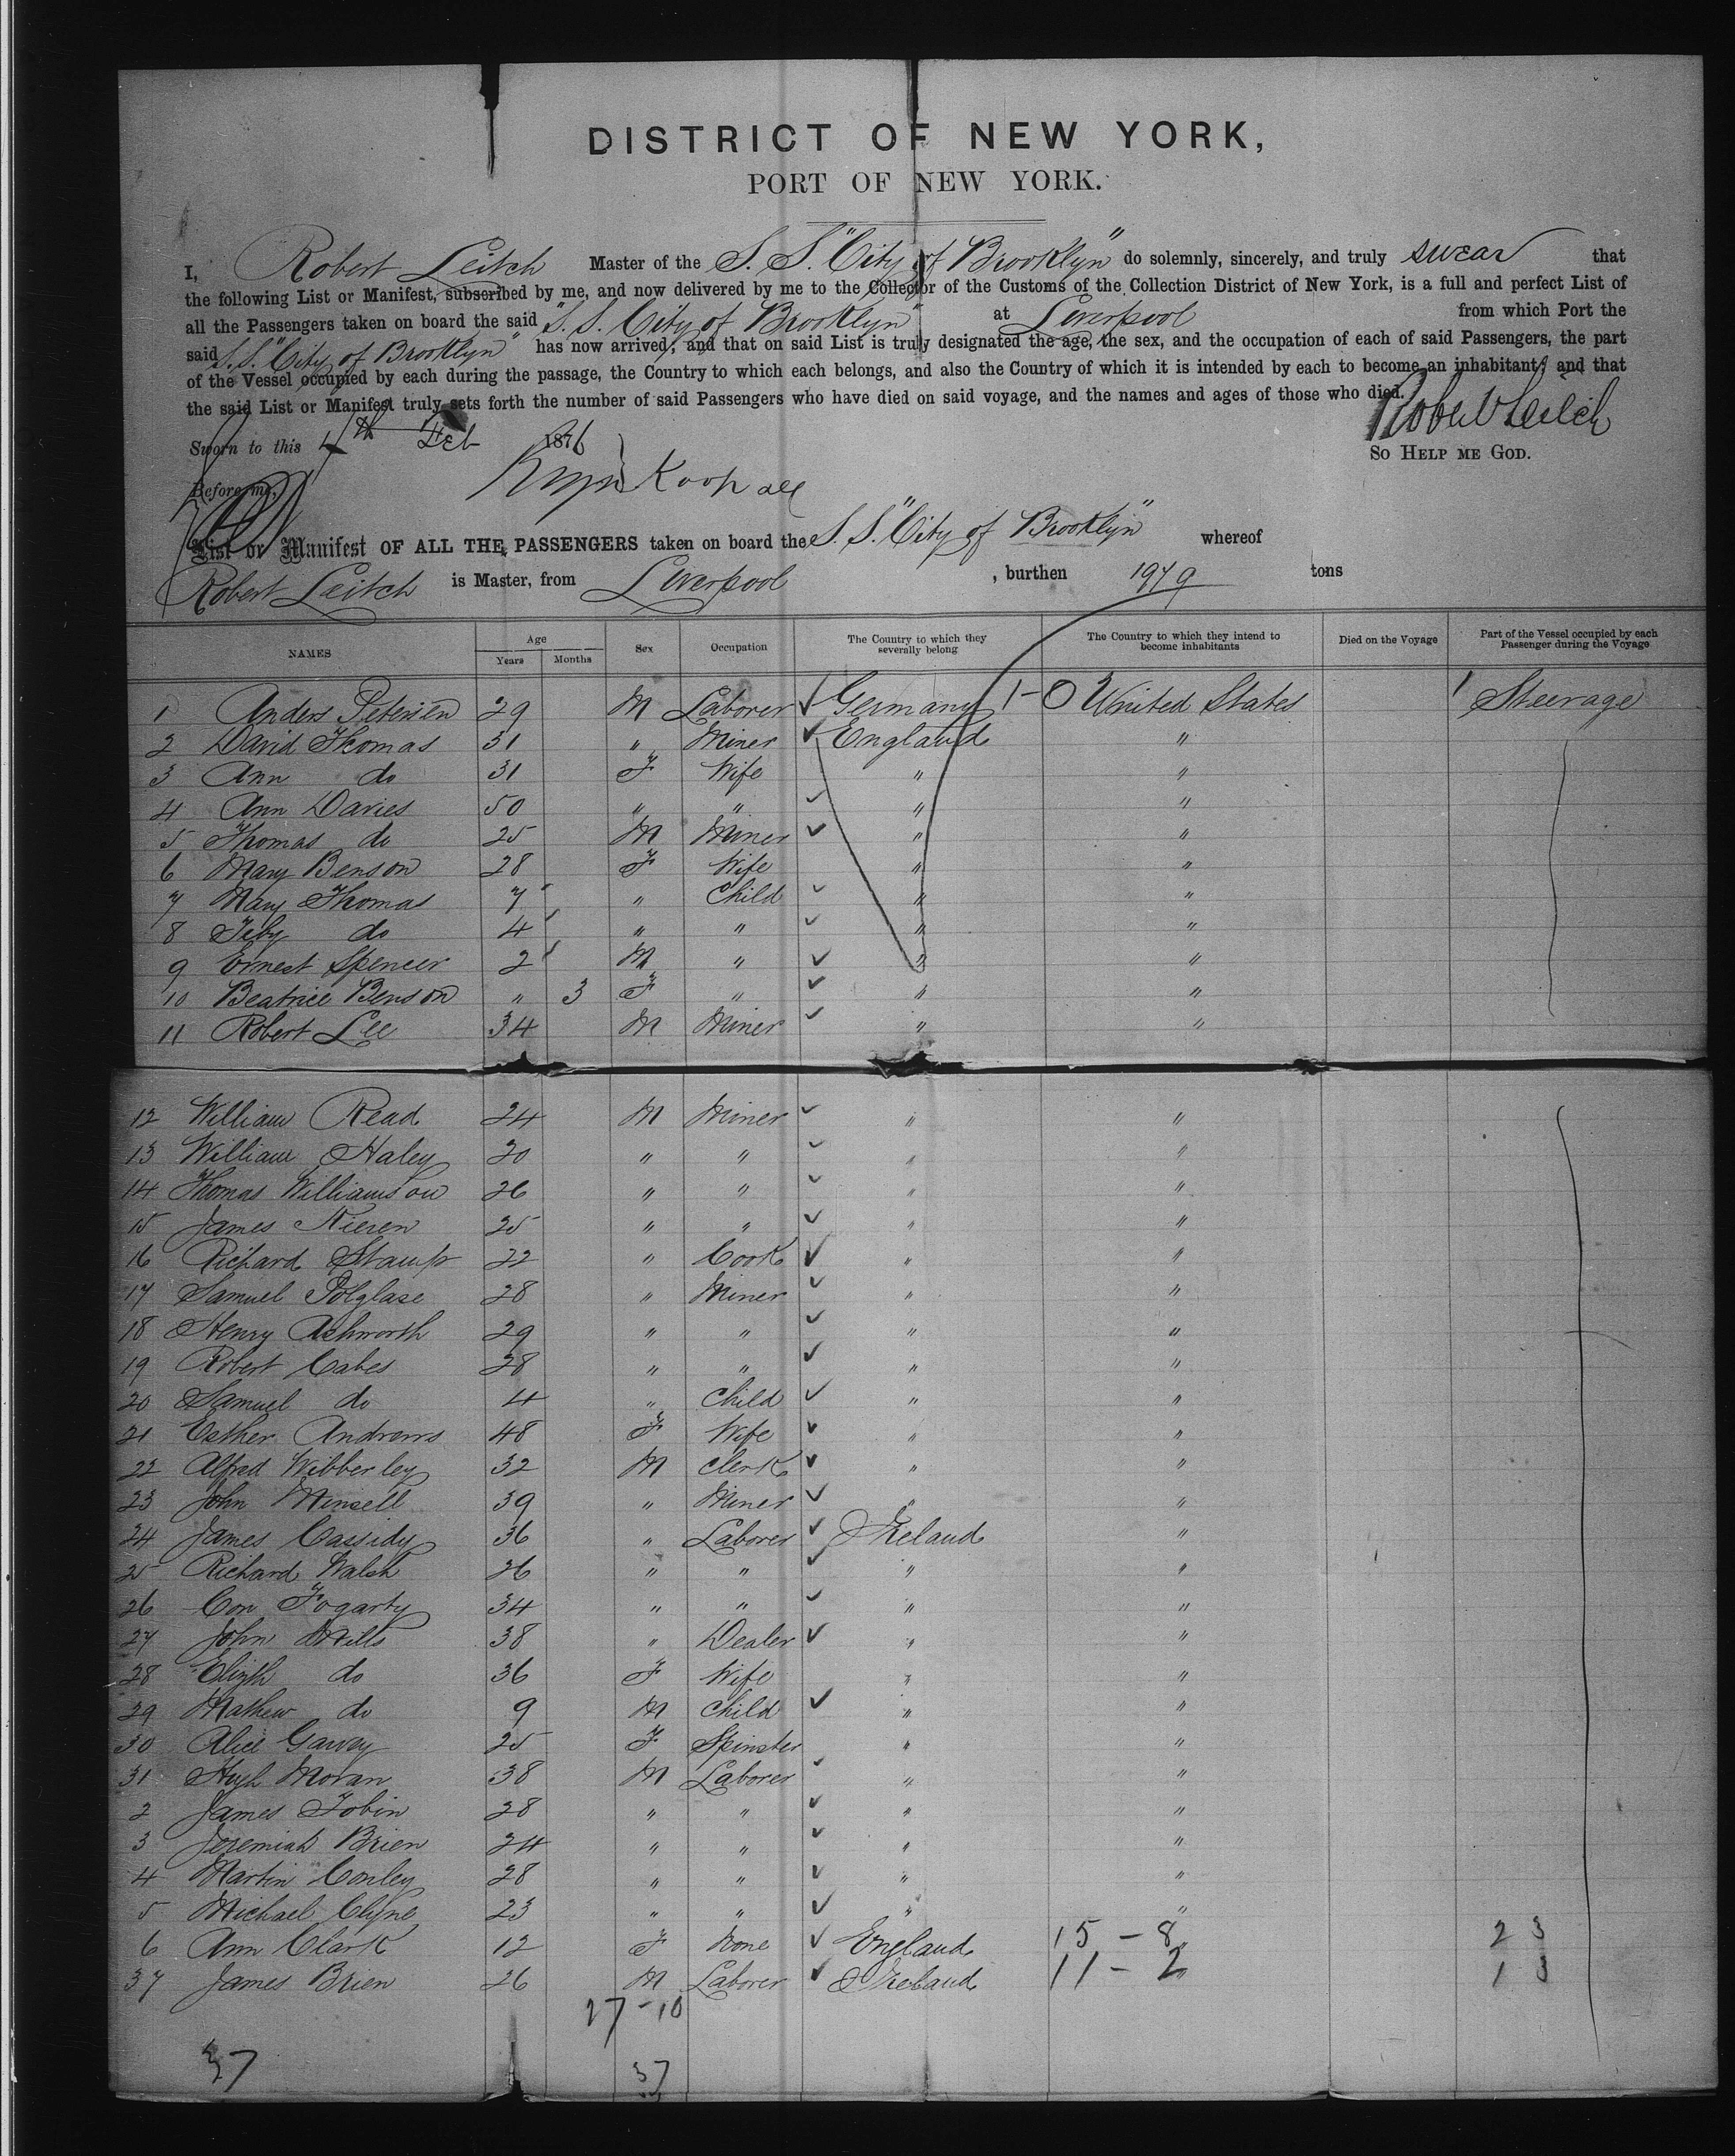 DISTRICT OF NEW YORK,
PORT OF NEW YORK.
I, Robert Leitch Master of the S. S. "City of Brooklyn" do solemnly, sincerely, and truly swear that
the following List or Manifest, subscribed by me, and now delivered by me to the Collector of the Customs of the Collection District of New York, is a full and perfect List of
all the Passengers taken on board the said "S. S. City of Brooklyn" at Liverpool from which Port the
said S.S. "City of Brooklyn" has now arrived; and that on said List is truly designated the age, the sex, and the occupation of each of said Passengers, the part
of the Vessel occupied by each during the passage, the Country to which each belongs, and also the Country of which it is intended by each to become an inhabitant; and that
the said List or Manifest truly sets forth the number of said Passengers who have died on said voyage, and the names and ages of those who died.
Robert Leitch
Sworn to this 4th Feb 1876
So HELP ME GOD.
Before me,
List or Manifest OF ALL THE PASSENGERS taken on board the S. S. "City of Brooklyn" whereof
Robert Leitch is Master, from Liverpool , burthen 1979 tons
NAMES Age Years Months Sex Occupation The Country to which they severally belong The Country to which they intend to become inhabitants Died on the Voyage Part of the Vessel occupied by each Passenger during the Voyage
1 Anders Petersen 29 M Laborer Germany 1-0 United States 1 Steerage
2 David Thomas 31 " Miner England "
3 Ann do 31 F Wife " "
4 Ann Davies 50 " " " "
5 Thomas do 25 M Miner " "
6 Mary Benson 28 F Wife " "
7 Mary Thomas 7 " Child " "
8 do 4 " " " "
9 Ernest Spencer 2 M " " "
10 Beatrice Benson " 3 F " " "
11 Robert Lee 34 M Miner " "
12 William Read 24 M Miner " "
13 William Haley 20 " " " "
14 Thomas Williamson 26 " " " "
15 James Nieren 25 " " " "
16 Richard Stamp 22 " Cook " "
17 Samuel Polglase 28 " Miner " "
18 Henry Ashworth 29 " " " "
19 Robert Cabes 28 " " " "
20 Samuel do 4 " Child " "
21 Esther Andrews 48 F Wife " "
22 Alfred Wibberley 32 M Clerk " "
23 John Minsell 39 " Miner " "
24 James Cassidy 36 " Laborer Ireland "
25 Richard Walsh 26 " " " "
26 Con Fogarty 34 " " " "
27 John Mills 38 " Dealer " "
28 Elizth do 36 F Wife " "
29 Mathew do 9 M Child " "
30 Alice Garvey 25 F Spinster " "
31 Hugh Moran 38 M Laborer " "
2 James Tobin 28 " " " "
3 Jeremiah Brien 24 " " " "
4 Martin Conley 28 " " " "
5 Michael Clyne 23 " " " "
6 Ann Clark 12 F None England 15 - 8 " 23
37 James Brien 26 M Laborer Ireland 11 - 2 " 13
27-10
37 37